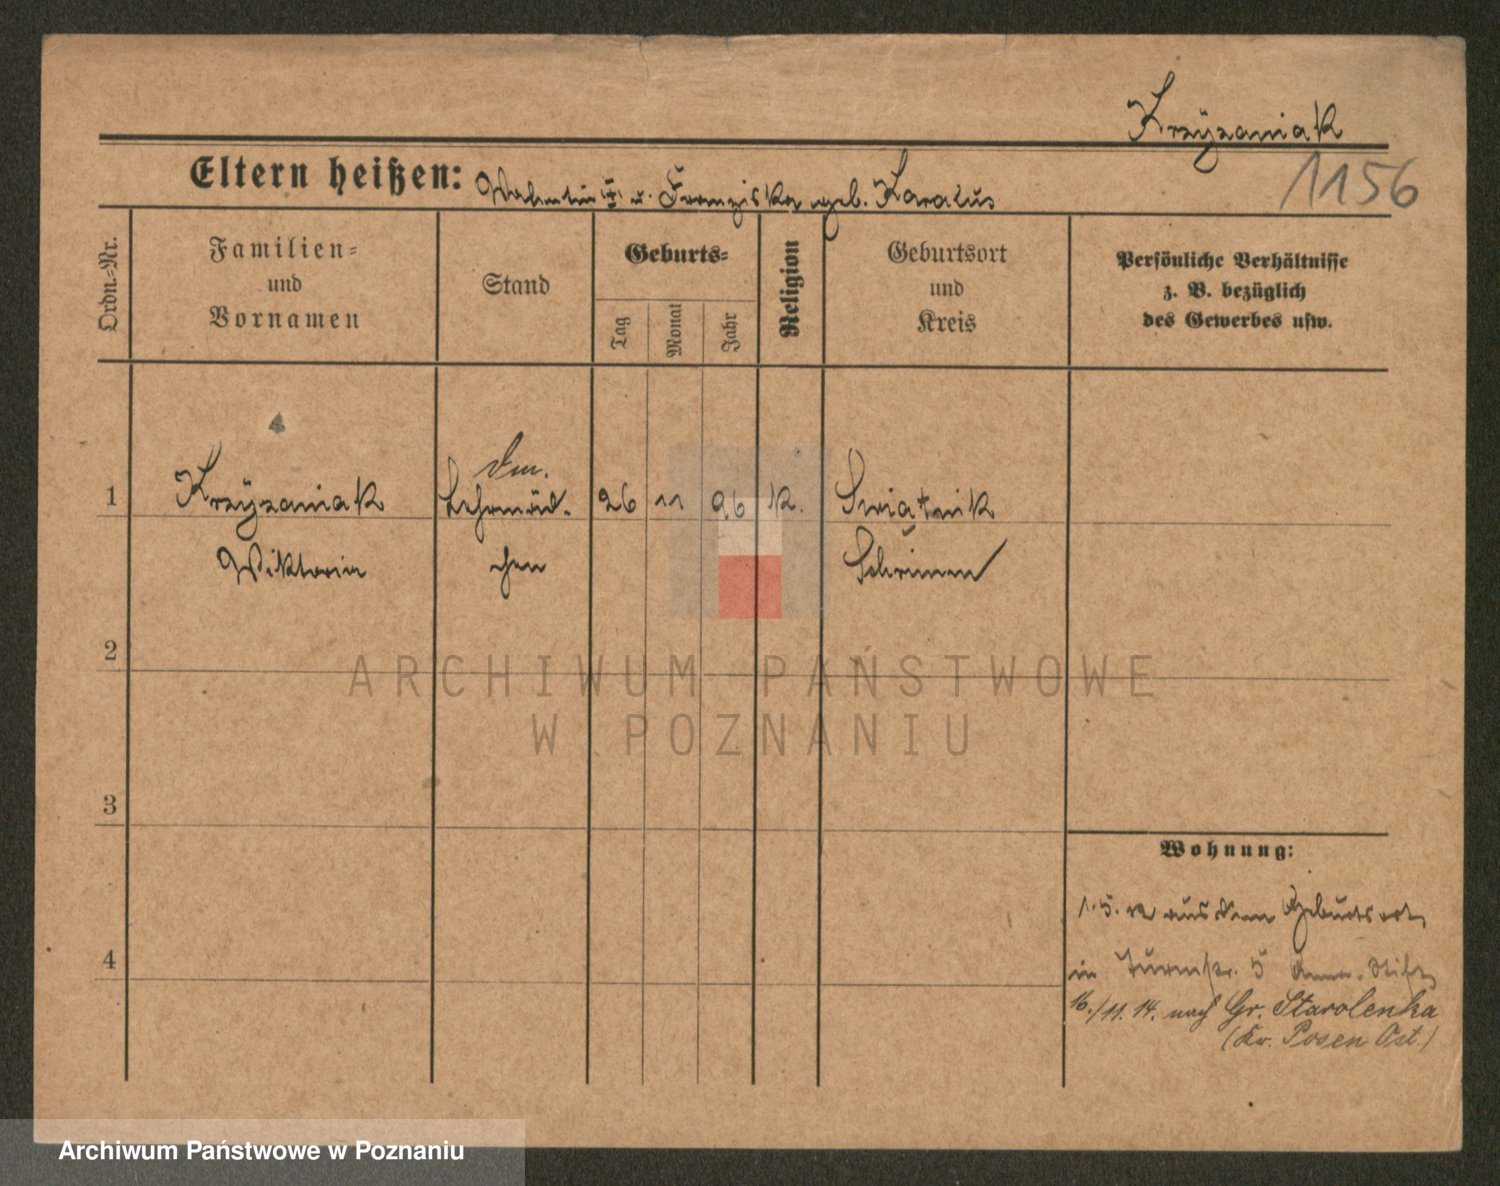 Krzyżaniak
1156
Eltern heißen: Valentin u. Franziska geb. Karalus
Ordn.-Nr.
Familien-
und
Vornamen
Stand
Geburts-
Tag
Monat
Jahr
Religion
Geburtsort
und
Kreis
Persönliche Verhältnisse
z. B. bezüglich
des Gewerbes usw.
1
Krzyżaniak
Lehrmäd-
26
11
96
k.
Swiątnik
Wiktoria
chen
Schrimm
2
3
4
Wohnung:
1. 5. aus dem Geburtsort
in Turmstr. 5 Anna-Stift
16./11. 14. nach Gr. Starolenka
(Kr. Posen Ost.)
ARCHIWUM PAŃSTWOWE
W POZNANIU
Archiwum Państwowe w Poznaniu